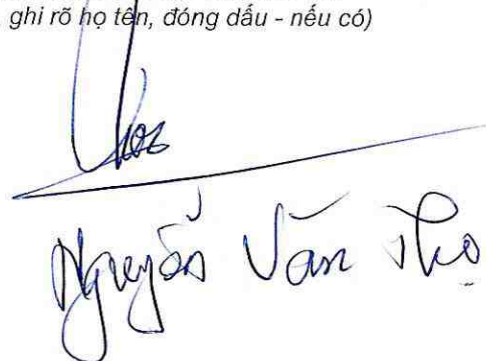 ghi rõ họ tên, đóng dấu - nếu có)
Nguyễn Văn Thọ